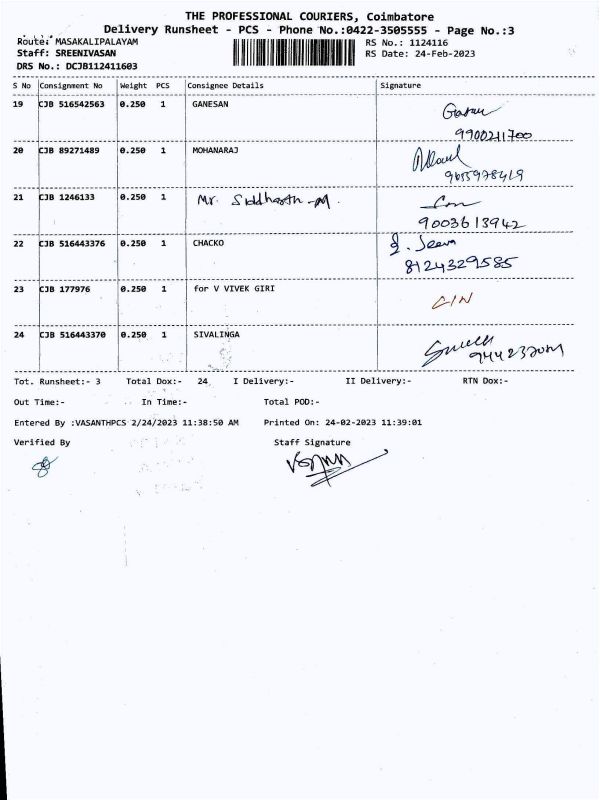 THE PROFESSIONAL COURIERS, Coimbatore
Delivery Runsheet - PCS - Phone No.:0422-3505555 - Page No.:3
Route: MASAKALIPALAYAM
RS No.: 1124116
Staff: SREENIVASAN
RS Date: 24-Feb-2023
DRS No.: DCJB112411603
S No Consignment No Weight PCS Consignee Details Signature
19 CJB 516542563 0.250 1 GANESAN
9900211700
20 CJB 89271489 0.250 1 MOHANARAJ
9655978419
21 CJB 1246133 0.250 1 Mr. Siddharth .M.
9003613942
22 CJB 516443376 0.250 1 CHACKO Jeeva
8124329585
23 CJB 177976 0.250 1 for V VIVEK GIRI
24 CJB 516443370 0.250 1 SIVALINGA
Tot. Runsheet:- 3 Total Dox:- 24 I Delivery:- II Delivery:- RTN Dox:-
Out Time:- In Time:- Total POD:-
Entered By :VASANTHPCS 2/24/2023 11:38:50 AM Printed On: 24-02-2023 11:39:01
Verified By Staff Signature